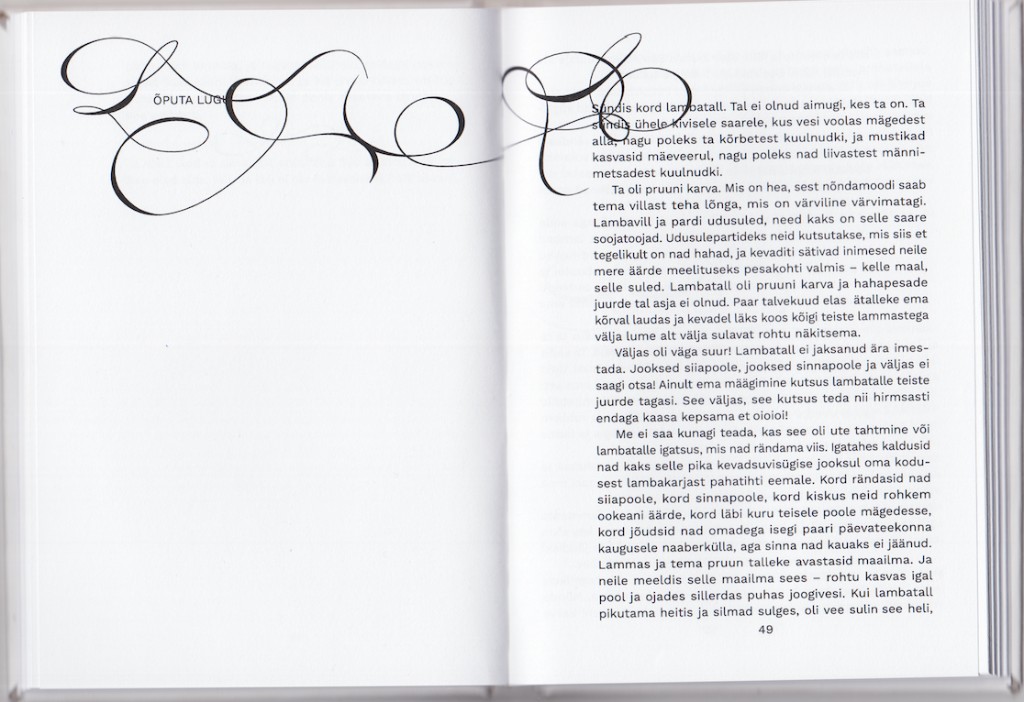 ÕPUTA LUGU
Sündis kord lambatall. Tal ei olnud aimugi, kes ta on. Ta
sündis ühele kivisele saarele, kus vesi voolas mägedest
alla, nagu poleks ta kõrbetest kuulnudki, ja mustikad
kasvasid mäeveerul, nagu poleks nad liivastest männi-
metsadest kuulnudki.
Ta oli pruuni karva. Mis on hea, sest nõndamoodi saab
tema villast teha lõnga, mis on värviline värvimatagi.
Lambavill ja pardi udusuled, need kaks on selle saare
soojatoojad. Udusulepartideks neid kutsutakse, mis siis et
tegelikult on nad hahad, ja kevaditi sätivad inimesed neile
mere äärde meelituseks pesakohti valmis – kelle maal,
selle suled. Lambatall oli pruuni karva ja hahapesade
juurde tal asja ei olnud. Paar talvekuud elas ätalleke ema
kõrval laudas ja kevadel läks koos kõigi teiste lammastega
välja lume alt välja sulavat rohtu näkitsema.
Väljas oli väga suur! Lambatall ei jaksanud ära imes-
tada. Jooksed siiapoole, jooksed sinnapoole ja väljas ei
saagi otsa! Ainult ema määgimine kutsus lambatalle teiste
juurde tagasi. See väljas, see kutsus teda nii hirmsasti
endaga kaasa kepsama et oioioi!
Me ei saa kunagi teada, kas see oli ute tahtmine või
lambatalle igatsus, mis nad rändama viis. Igatahes kaldusid
nad kaks selle pika kevadsuvisügise jooksul oma kodu-
sest lambakarjast pahatihti eemale. Kord rändasid nad
siiapoole, kord sinnapoole, kord kiskus neid rohkem
ookeani äärde, kord läbi kuru teisele poole mägedesse,
kord jõudsid nad omadega isegi paari päevateekonna
kaugusele naaberkülla, aga sinna nad kauaks ei jäänud.
Lammas ja tema pruun talleke avastasid maailma. Ja
neile meeldis selle maailma sees – rohtu kasvas igal
pool ja ojades sillerdas puhas joogivesi. Kui lambatall
pikutama heitis ja silmad sulges, oli vee sulin see heli,
49